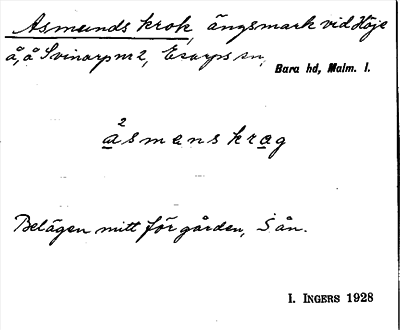 Asmunds krok, ängsmark vid Höje
å, å Svinarp nr 2, Esarps sn,
Bara hd, Malm. l.
2
åsmenskrag
Belägen mitt för gården, S ån.
I. INGERS 1928